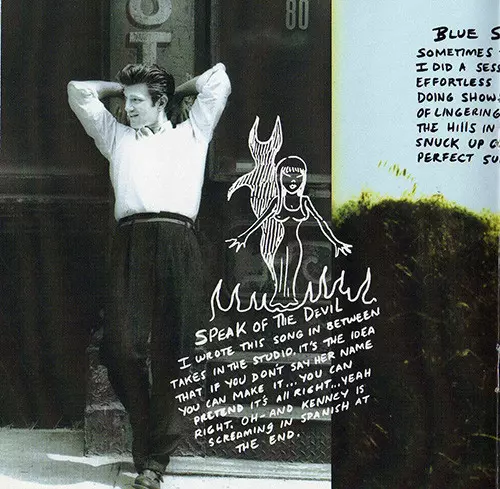 ST
80
SPEAK OF THE DEVIL
I WROTE THIS SONG IN BETWEEN
TAKES IN THE STUDIO. IT'S THE IDEA
THAT IF YOU DON'T SAY HER NAME
YOU CAN MAKE IT...YOU CAN
PRETEND IT'S ALL RIGHT...YEAH
RIGHT. OH-AND KENNEY IS
SCREAMING IN SPANISH AT
THE END.
BLUE S
SOMETIMES
I DID A SESS
EFFORTLESS
DOING SHOW
OF LINGERING
THE HILLS IN
SNUCK UP O
PERFECT SU